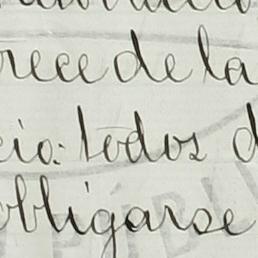 rece de la
cio: todos d
obligarse